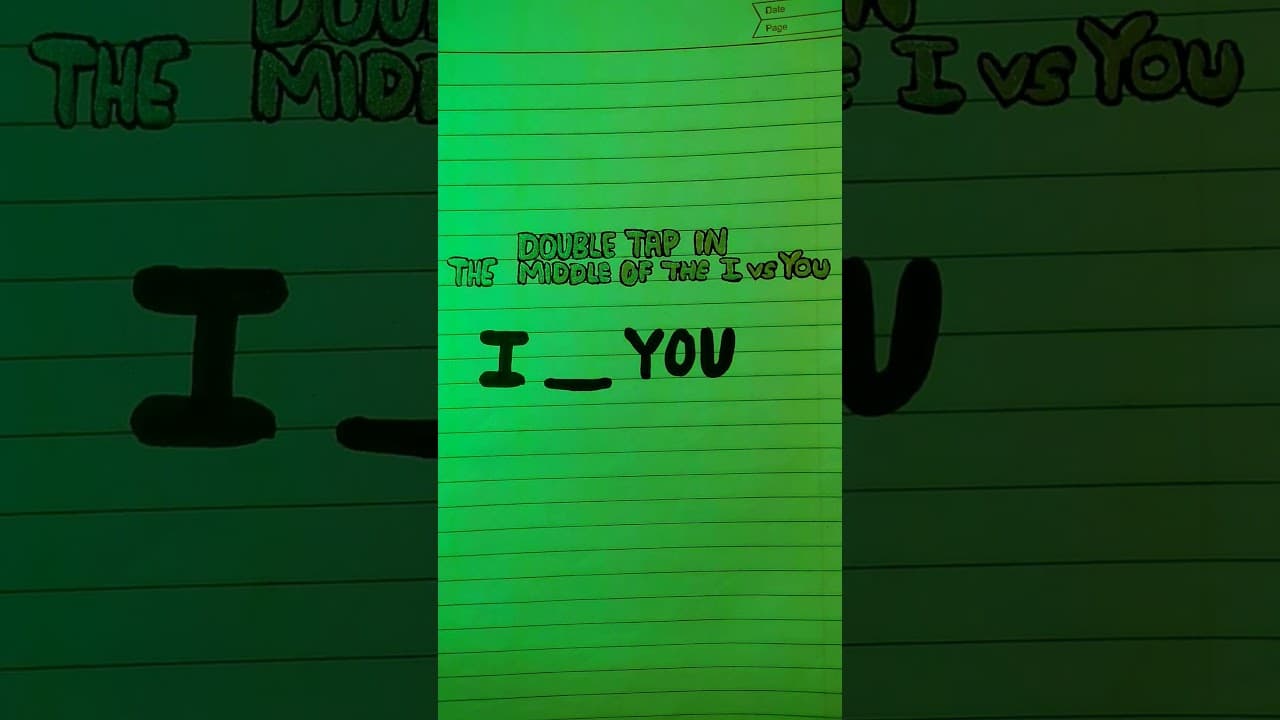 Date
Page
DOUBLE TAP IN
THE MIDDLE OF THE I vs YOU
I _ YOU